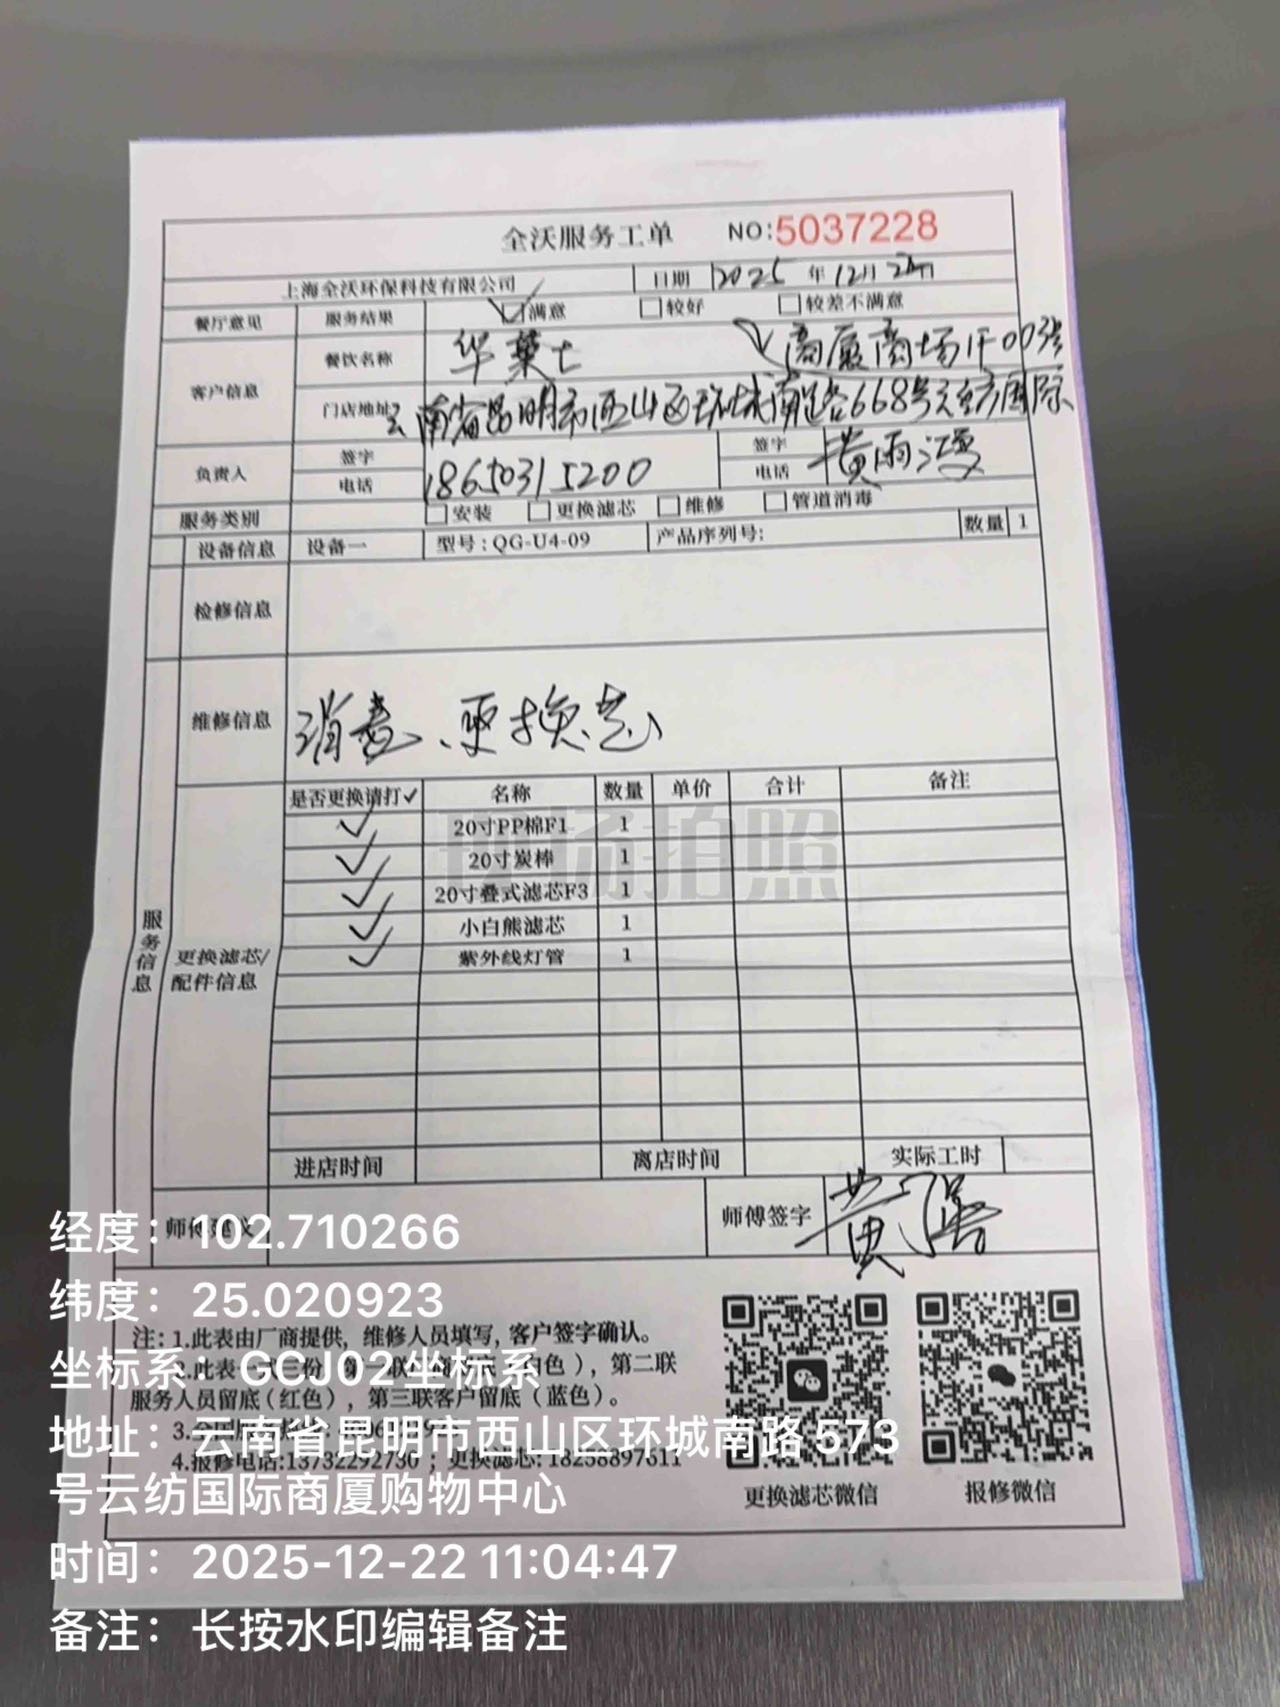 全沃服务工单 NO:5037228
上海全沃环保科技有限公司 日期 2025 年 12月 22日
餐厅意见 服务结果 ☑满意 □较好 □较差不满意
客户信息 餐饮名称 华莱士 商厦商场1F003号
门店地址 云南省昆明市西山区环城南路668号云纺国际
负责人 签字 签字 黄雨
电话 18650315200 电话
服务类别 □安装 □更换滤芯 □维修 □管道消毒
设备信息 设备一 型号:QG-U4-09 产品序列号: 数量 1
检修信息
维修信息 消毒、更换芯
服务信息
更换滤芯/配件信息
是否更换请打✓ 名称 数量 单价 合计 备注
✓ 20寸PP棉F1 1
✓ 20寸炭棒 1
✓ 20寸叠式滤芯F3 1
✓ 小白熊滤芯 1
✓ 紫外线灯管 1
现场拍照
进店时间 离店时间 实际工时
师傅建议 师傅签字 黄
注: 1.此表由厂商提供, 维修人员填写, 客户签字确认。
2.此表一式三份, 第一联 白色), 第二联
服务人员留底(红色), 第三联客户留底(蓝色)。
4.报修电话:13732292730 ; 更换滤芯: 18258897611
更换滤芯微信 报修微信
经度: 102.710266
纬度: 25.020923
坐标系: GCJ02坐标系
地址: 云南省昆明市西山区环城南路573
号云纺国际商厦购物中心
时间: 2025-12-22 11:04:47
备注: 长按水印编辑备注